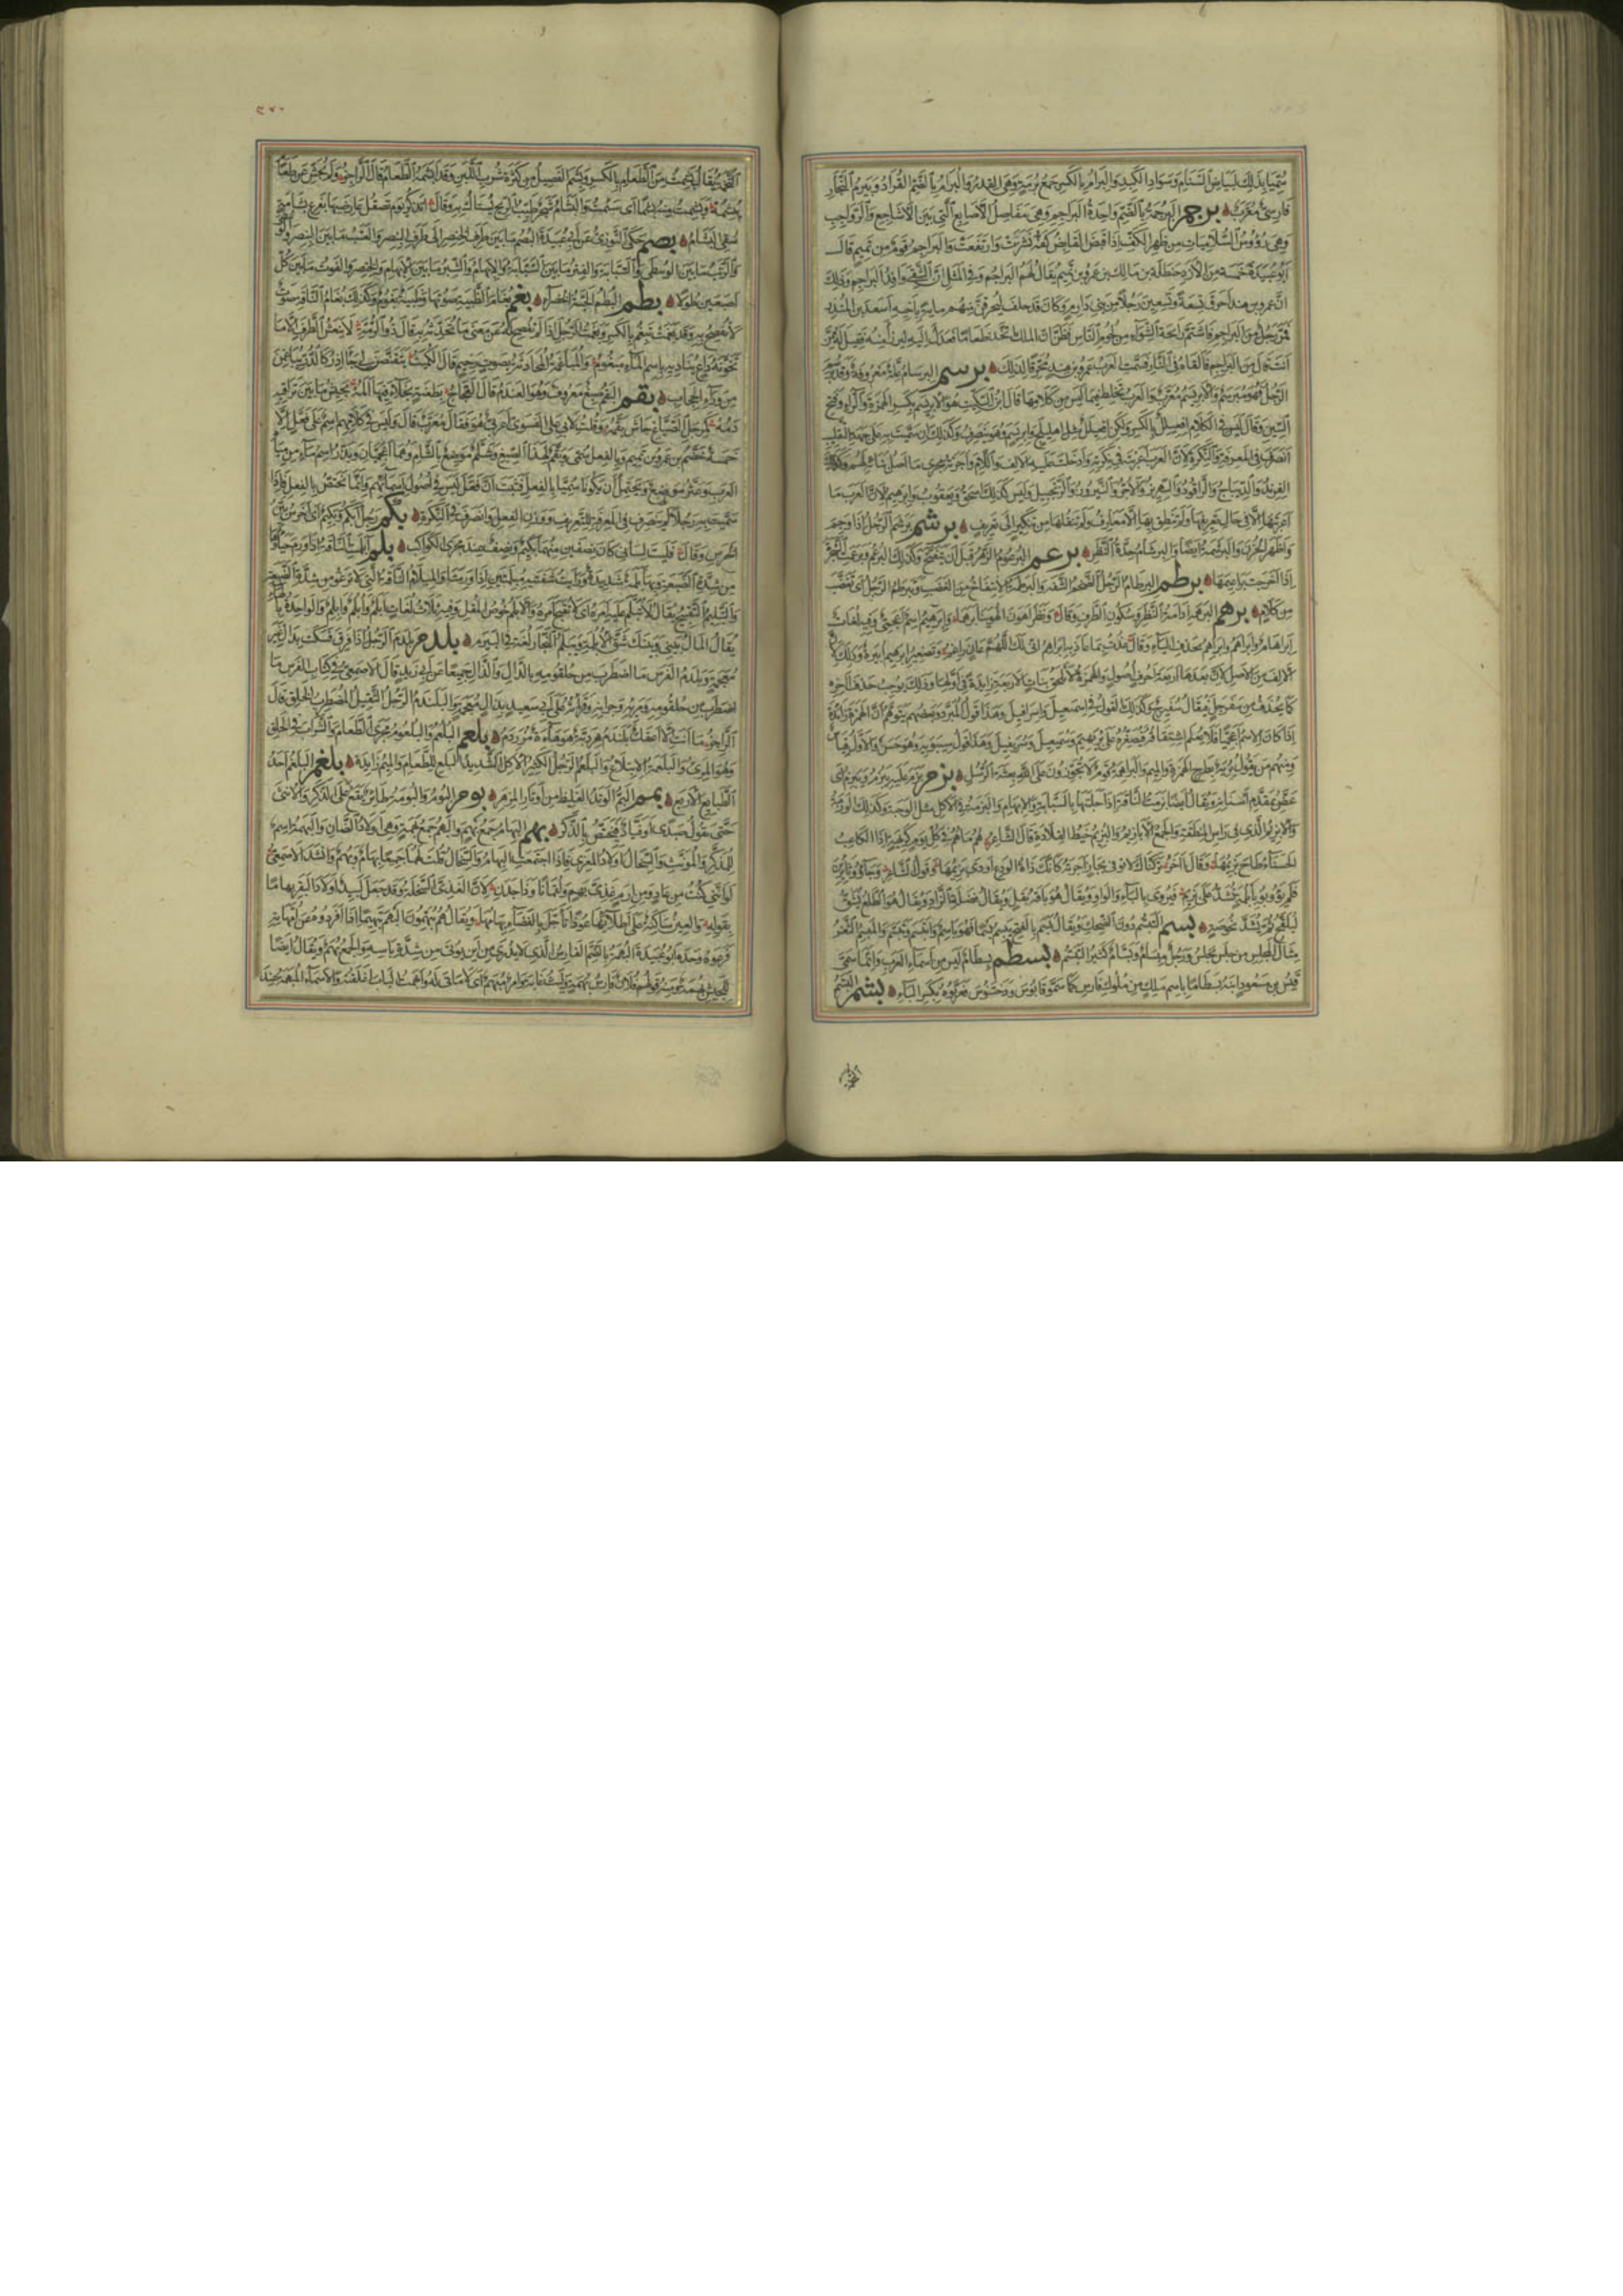 سُمّيا بذلك لبياض السنام وسواد الكبد والبرام بالكسر جمع برمة وهى القدر والبرام بالضم القراد وبيرم النجار
فارسىّ معرّب برجم البرجمة بالضم واحدة البراجم وهى مفاصل الاصابع التى بين الاشاجع والرواجب
وهى رؤوس السلاميات من ظهر الكف اذا قبض القابض كفه نشزت وارتفعت والبراجم قوم من تميم قال
ابو عبيدة خمسة من اولاد حنظلة بن مالك بن عمرو بن تميم يقال لهم البراجم وفى المثل ان الشقى وافد البراجم وذلك
ان عمرو بن هند احرق تسعة وتسعين رجلا من بنى دارم وكان قد حلف ليحرقن منهم مايةً باخيه اسعد بن المنذر
فمرّ رجل من البراجم فاشتمّ رائحة الشواء من لحوم الناس فظنّ ان الملك يتخذ طعاما فعدل اليه ليرزأ منه فقيل له ممن
انت قال من البراجم فالقاه فى النار فسمت العرب عمرو بن هند محرّقا لذلك برسم البرسام علة معروفة وقد برسم
الرجل فهو مبرسم والابريسم معرّب والعرب تخلط فيما ليس من كلامها قال ابن السكيت هو الابريسم بكسر الهمزة والراء وفتح
السين وقال ليس فى الكلام افعيلل بالكسر ولكن افعيلل مثل اهليلج وابريسم وهو ينصرف وكذلك ان سميت به على جهة التلقيب
انصرف فى المعرفة والنكرة لان العرب اعربته فى نكرته وادخلت عليه الالف واللام واجرته مجرى ما اصل بنائه لهم وكذلك
الفرند والديباج والراقود والشهريز والآجر والنيروز والزنجبيل وليس كذلك اسحق ويعقوب وابرهيم لان العرب ما
اعربتها الا فى حال تعريفها ولم تنطق بها الا معارف ولم تنقلها من تنكير الى تعريف برشم برشم الرجل اذا وجم
واظهر الحزن والبرشمة ايضا والبرشام حدة النظر برعم البرعوم الزهر قبل ان يتفتح وكذلك البرعم وبرعمت الشجرة
اذا اخرجت براعيمها برطم البرطام الرجل الضخم الشفة والبرطمة الانتفاخ من الغضب وتبرطم الرجل اى تغضب
من كلام برهم البرهمة ادامة النظر وسكون الطرف وقال ونظرا هون الهوينا برهما وابرهيم اسم اعجمىّ وفيه لغات
ابراهام وابراهم وابراهِم بحذف الياء وقال عذت بما عاذ به ابراهم انى لك اللهم عان راغم وتصغير ابرهيم ابيره وذلك لان
الالف من الاصل لان بعدها اربعة احرف اصول والهمزة لا تلحق بنات الاربعة زايدة فى اولها وذلك يوجب حذف آخره
كما يحذف من سفرجل فيقال سفيرج وكذلك القول فى اسمعيل واسرافيل وهذا قول المبرد وبعضهم يتوهم ان الهمزة زايدة
اذا كان الاسم اعجميا فلا يعلم اشتقاقه فيصغره على بريهيم وسميعيل وسريفيل وهذا قول سيبويه وهو حسن والاول قياس
ومنهم من يقول بريه بطرح الهمزة والميم والبراهمة قوم لا يجوزون على الله بعثة الرسل بزم بزم عليه يبزم ويبزم اى
عضّ بمقدّم اسنانه ويقال ايضا بزمت الناقة اذا حلبتها بالسبابة والابهام والبزمة فى الاكل مثل الوجبة وكذلك الوزمة
والابزيم الذى فى راس المنطقة والجمع الابازيم والبزيم خيط القلادة قال الشاعر هم ما هم فى كل يوم كريهة اذا الكاعب
الحسناء طاح بزيمها وقال آخر تركناك لا توفى بجار اجرته كانك ذات الودع اودى بزيمها وقول الشاعر وجاؤا ثائرين
فلم يؤوبوا بابلمة تشد على بزيم فيروى بالباء والواو ويقال هو باقة بقل ويقال فضلة الزاد ويقال هو الطلع يشق
ليلقح ثم يشد بخوصة بسم التبسم دون الضحك ويقال بسم بالفتح يبسم بسما فهو باسم وابتسم وتبسم والمبسم الثغر
مثال المجلس من جلس يجلس ورجل مبسام وبسام كثير التبسم بسطم بسطام ليس من اسماء العرب وانما سمى
قيس بن مسعود ابنه بسطاما باسم ملك من ملوك فارس كما سموا قابوس ودختنوس فعربوه بكسر الباء بشم البشم
التخمة يقال بشمت من الطعام بالكسر وبشم الفصيل من كثرة شرب اللبن وقد ابشمه الطعام قال الراجز ولم يجشئ عن طعام
يبشمه وبشمت منه بشما اى سئمت والبشام شجر طيب الريح يستاك به وقال اتذكر يوم تصقل عارضيها بفرع بشامة
سقى البشام بصم حكى التوزى عن ابى عبيدة البصم ما بين طرف الخنصر الى طرف البنصر والعتب ما بين البنصر والوسطى
والرتب ما بين الوسطى والسبابة والفتر ما بين السبابة والابهام والشبر ما بين الابهام والخنصر والفوت ما بين كل
اصبعين طولا بطم البطم الحبة الخضراء بغم بغام الظبية صوتها وظبية بغوم وكذلك بغام الناقة صوت
لا تفصح به وقد بغمت تبغم بالكسر وبغمت الرجل اذا لم تفصح له عن معنى ما تحدثه به قال ذو الرمة لا ينعش الطرف الا ما
تخونه داع يناديه باسم الماء مبغوم والمباغمة المحادثة بصوت رخيم قال الكميت يتقنصن لى جآذر كالدر يباغمن
من وراء الحجاب بقم البقم صبغ معروف وهو العندم قال العجاج بطعنة نجلاء فيها المه يجيش ما بين تراقيه
دمه كمرجل الصباغ جاش بقمه وقلت لابى على الفسوى اعربىّ هو فقال معرب قال وليس فى كلامهم اسم على فعّل الا
خمسة خضم بن عمرو بن تميم وبالفعل سمى وبقم لهذا الصبغ وشلم موضع بالشام وهما اعجميان وبذر اسم ماء من مياه
العرب وعثر موضع ويحتمل ان يكونا سميا بالفعل فثبت ان فعل ليس فى اصول اسمائهم وانما يختص بالفعل فاذا
سميت به رجلا لم ينصرف فى المعرفة للتعريف ووزن الفعل وانصرف فى النكرة بكم رجل ابكم وبكيم اى اخرس بيّن
الخرس وقال فليت لسانى كان نصفين منهما بكيم ونصف عند مجرى الكواكب بلم ابلمت الناقة اذا ورم حياؤها
من شدة الضبعة وبها بلمة شديدة ورايت شفتيه مبلمتين اذا ورمتا والمبلام الناقة التى لا ترغو من شدة الضبعة
والتبليم التقبيح يقال لا تبلم عليه امره اى لا تقبح امره والابلم خوص المقل وفيه ثلاث لغات ابلم وابلم وابلم والواحدة بالهاء
يقال المال بينى وبينك شق الابلمة وبيلم النجار لغة فى البيرم بلدم بلدم الرجل اذا فرق فسكت بدال غير
معجمة وبلدم الفرس ما اضطرب من حلقومه بالدال والذال جميعا عن ابى زيد قال الاصمعى فى كتاب الفرس ما
اضطرب من حلقومه ومريئه وجرانه وقرأته على ابى سعيد بدال معجمة والبلندم الرجل الثقيل المضطرب الخلق قال
الراجز ما انت الا اعفك بلندم هردبة هوهاءة مزردم بلعم البلعم والبلعوم مجرى الطعام والشراب فى الحلق
وهو المرىء والبلعمة الابتلاع والبلعم الرجل الكثير الاكل الشديد البلع للطعام والميم زايدة بلغم البلغم احد
الطبايع الاربع بمم البم الوتد الغليظ من اوتار المزهر بوم البوم والبومة طائر يقع على الذكر والانثى
حتى تقول صدى او فياد فيختص بالذكر بهم البهام جمع بهم والبهم جمع بهمة وهى اولاد الضان والبهمة اسم
للمذكر والمونث والسخال اولاد المعزى فاذا اجتمعت البهام والسخال قلت لهما جميعا بهام وبهم وانشد الاصمعى
لو اننى كنت من عاد ومن ارم غذى بهم ولقمانا وذا جدن لان الغذى السخلة وقد جعل لبيد اولاد البقر بهاما
بقوله والعين ساكنة على اطلائها عوذا تأجل بالفضاء بهامها ويقال هم يبهمون البهم تبهيما اذا افردوه عن امهاته
فرعوه وحده ابو عبيدة البهمة بالضم الفارس الذى لا يدرى من اين يوتى من شدة باسه والجمع بهم ويقال ايضا
للجيش بهمة ومنه قولهم فلان فارس بهمة وليث غابة وامر مبهم اى لا ماتى له وابهمت الباب اغلقته والاسماء المبهمة عند